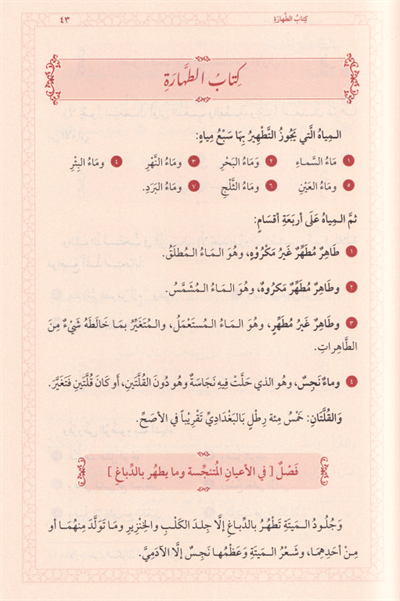 كِتَابُ الطَّهارَةِ
٤٣
كِتَابُ الطَّهَارَةِ
الـمِياهُ الَّتي يَجُوزُ التَّطْهِيرُ بِهَا سَبْعُ مِياهٍ:
١ مَاءُ السَّماءِ ٢ وَمَاءُ البَحْرِ ٣ ومَاءُ النَّهْرِ ٤ ومَاءُ البِئْرِ
٥ ومَاءُ العَيْنِ ٦ ومَاءُ الثَّلْجِ ٧ ومَاءُ البَرَدِ.
ثمَّ الـمِياهُ عَلَى أربَعَةِ أقسَامٍ:
١ طَاهِرٌ مُطَهِّرٌ غَيرُ مَكْرُوْهٍ، وهُوَ الـمَاءُ الـمُطلَقُ.
٢ وطَاهِرٌ مُطَهِّرٌ مَكرُوهٌ، وهُوَ الـمَاءُ الـمُشَمَّسُ.
٣ وطَاهِرٌ غَيرُ مُطَهِّرٍ، وهُوَ الـمَاءُ الـمُستَعْمَلُ، والـمُتَغَيِّرُ بمَا خَالَطَهُ شَيْءٌ مِنَ
الطَّاهِراتِ.
٤ وماءٌ نَجِسٌ، وهُو الذي حَلَّتْ فِيهِ نَجَاسَةٌ وهُو دُونَ القُلَّتَينِ، أو كَانَ قُلَّتَينِ فتَغَيَّرَ.
والقُلَّتَانِ: خَمْسُ مِئة رِطْلٍ بالبَغْدَادِيِّ تَقْرِيبًا في الأصَحِّ.
فَصْلٌ [ في الأعيانِ الـمُتنجِّسة وما يطهُر بالدِّباغِ ]
وَجُلُودُ الـمَيتَةِ تَطْهُرُ بالدِّباغِ إلَّا جِلدَ الكَلْبِ والخِنْزِيرِ ومَا تَوَلَّدَ مِنْهُمَا أو
مِنْ أحَدِهِمَا، وشَعْرُ الـمَيتَةِ وعَظْمُها نَجِسٌ إلَّا الآدَمِيَّ.